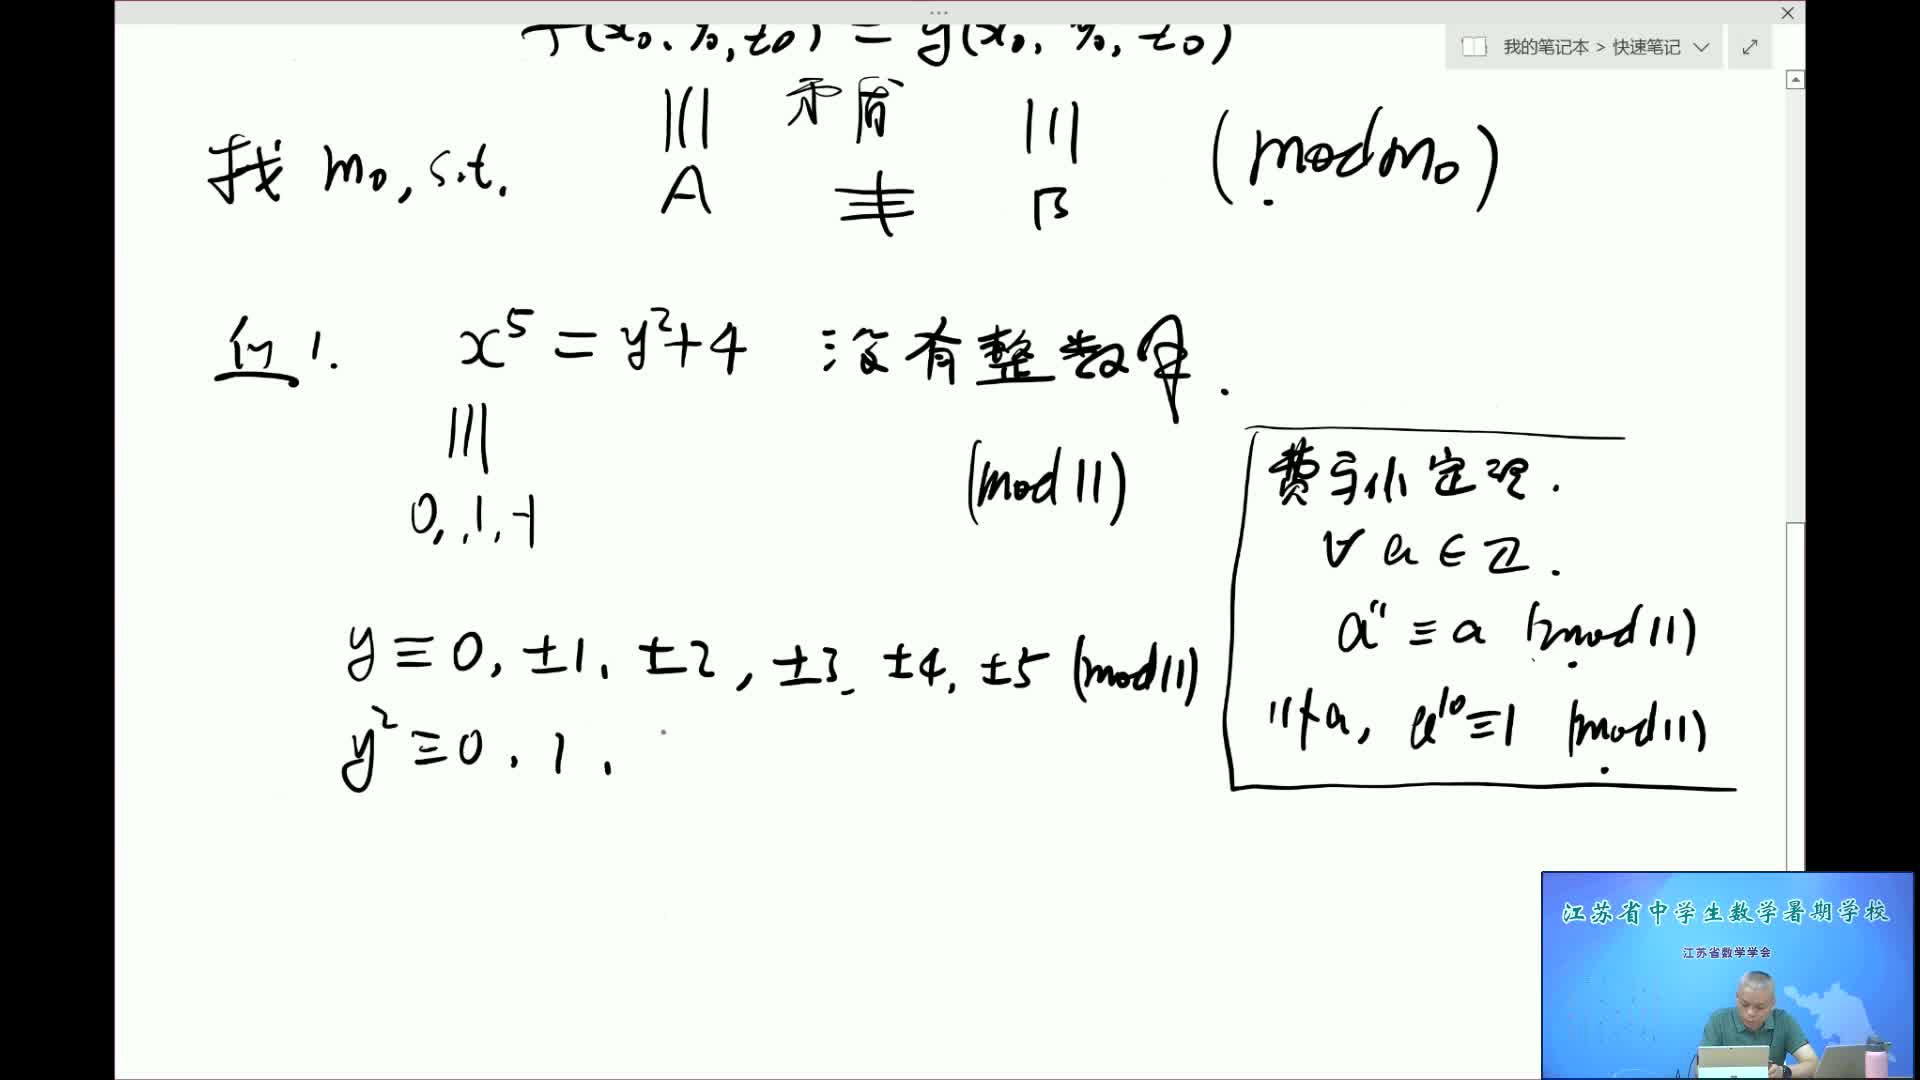 f(x₀, y₀, z₀) = g(x₀, y₀, z₀)
我的笔记本 > 快速笔记
||| 矛盾 |||
找 m₀, s.t. A ≢ B (mod m₀)
例1. x⁵ = y²+4 没有整数解.
||| (mod 11)
0, 1, -1
费马小定理.
∀ a ∈ ℤ.
a¹¹ ≡ a (mod 11)
11∤a, a¹⁰ ≡ 1 (mod 11)
y ≡ 0, ±1, ±2, ±3, ±4, ±5 (mod 11)
y² ≡ 0, 1,
江苏省中学生数学暑期学校
江苏省数学学会